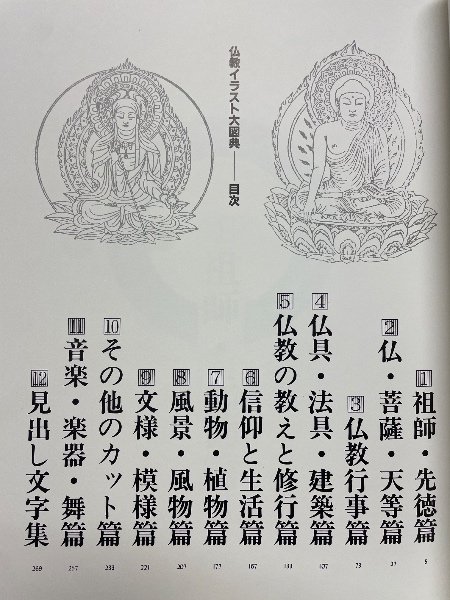 仏教イラスト大図典──目次
1 祖師・先徳篇 5
2 仏・菩薩・天等篇 37
3 仏教行事篇 73
4 仏具・法具・建築篇 107
5 仏教の教えと修行篇
6 信仰と生活篇 167
7 動物・植物篇 177
8 風景・風物篇 207
9 文様・模様篇 221
10 その他のカット篇
11 音楽・楽器・舞篇 257
12 見出し文字集 269